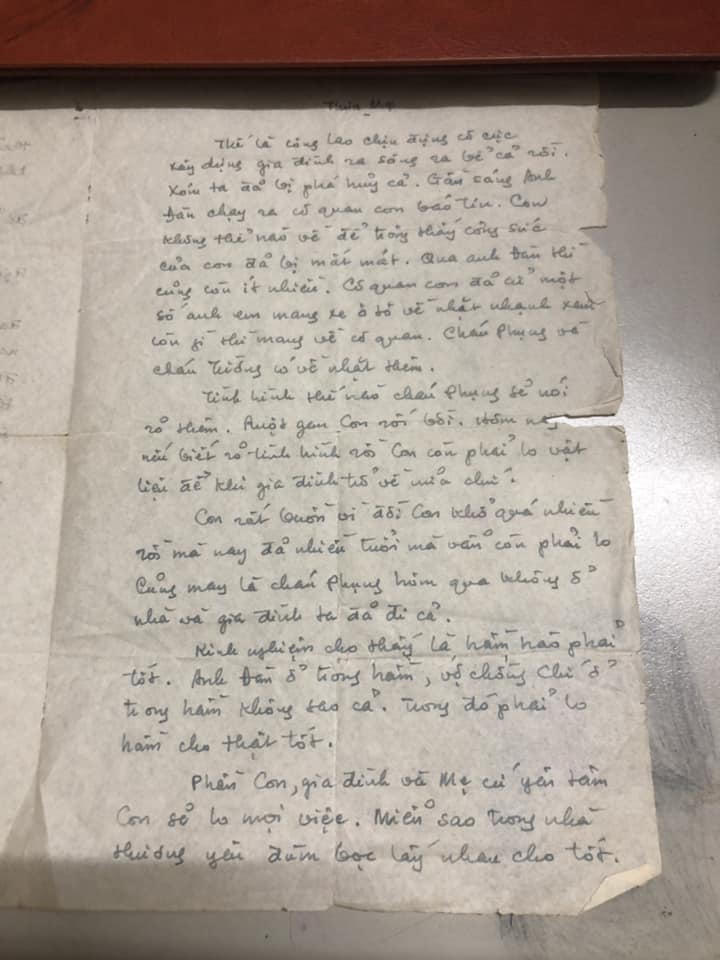 Thưa Mẹ
Thế là công lao chịu đựng cơ cực
xây dựng gia đình ra sông ra bể cả rồi.
Xóm ta đã bị phá huỷ cả. Gần sáng Anh
Đàn chạy ra cơ quan con báo tin. Con
không thể nào về để trông thấy công sức
của con đã bị mất mát. Qua anh Đàn thì
cũng còn ít nhiều. Cơ quan con đã cử một
số anh em mang xe ô tô về nhặt nhạnh xem
còn gì thì mang về cơ quan. Cháu Phụng và
cháu Tường có về nhặt thêm.
Tình hình thế nào cháu Phụng sẽ nói
rõ thêm. Ruột gan Con rối bời. Hôm nay
nếu biết rõ tình hình rồi Con còn phải lo vật
liệu để khi gia đình trở về nữa chứ.
Con rất buồn vì đời Con khổ quá nhiều
rồi mà nay đã nhiều tuổi mà vẫn còn phải lo
Cũng may là cháu Phụng hôm qua không ở
nhà và gia đình ta đã đi cả.
Kinh nghiệm cho thấy là hầm hào phải
tốt. Anh Đàn ở trong hầm, vợ chồng Chi ở
trong hầm không sao cả. Trong đó phải lo
hầm cho thật tốt.
Phần Con, gia đình và Mẹ cứ yên tâm
Con sẽ lo mọi việc. Miễn sao trong nhà
thương yêu đùm bọc lấy nhau cho tốt.